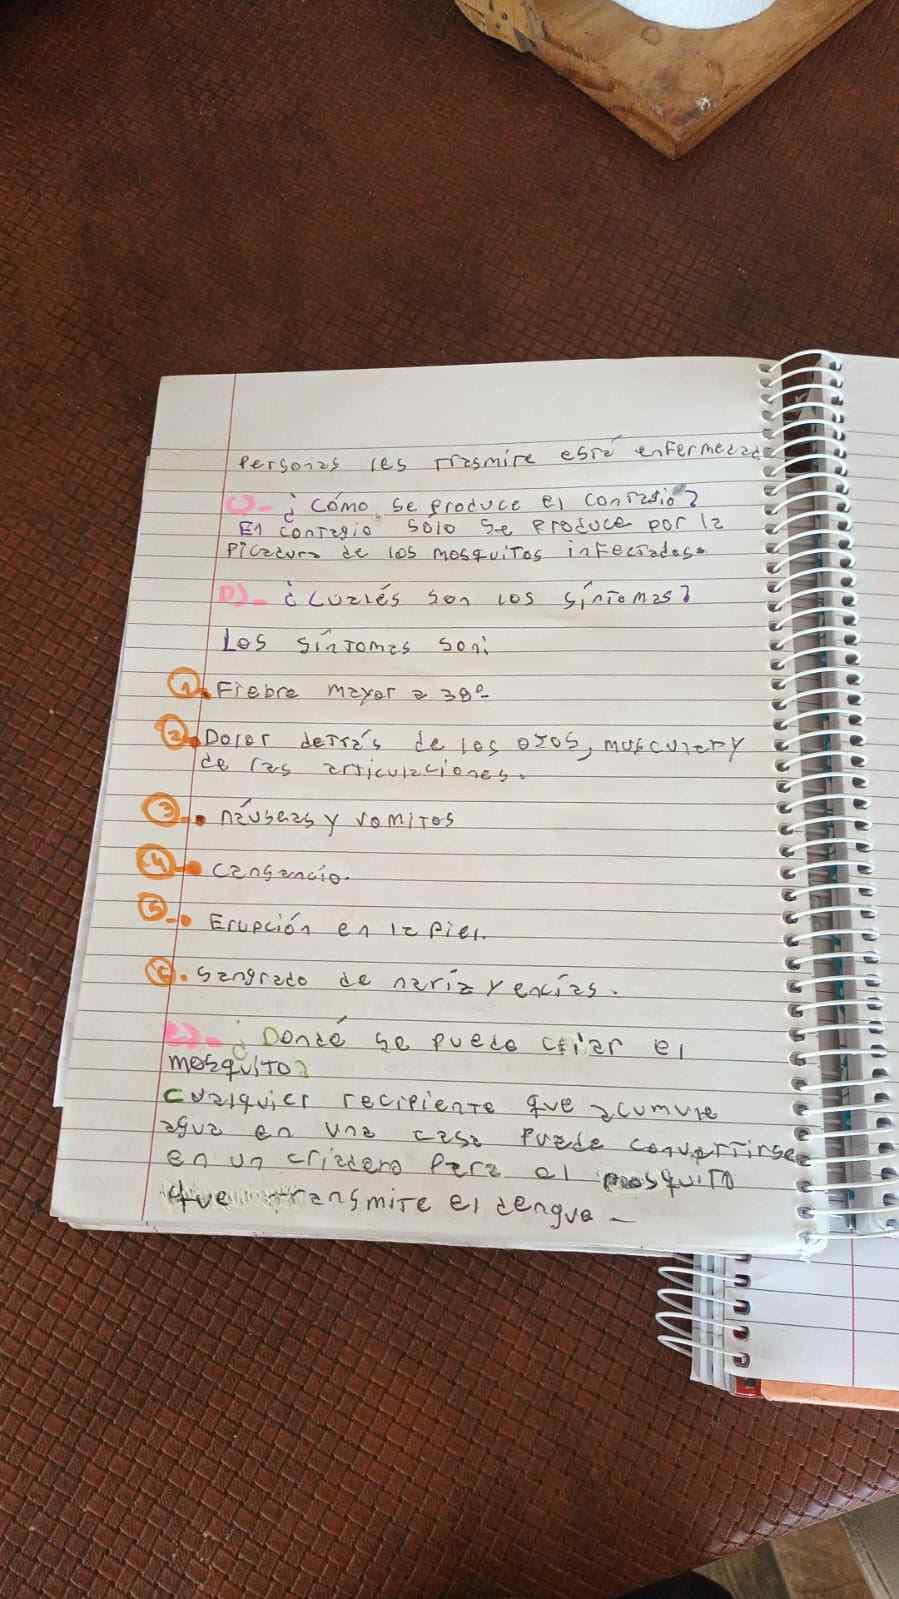 Personas les trasmite está enfermedad
C)- ¿Cómo se produce el contagio?
El contagio sólo se produce por la
picadura de los mosquitos infectados.
D)- ¿Cuáles son los síntomas?
Los síntomas son:
1. Fiebre mayor a 38°
2. Dolor detrás de los ojos, muscular y
de las articulaciones.
3. náuseas y vomitos
4. cansancio.
5. Erupción en la piel.
6. sangrado de nariz y encías.
E)- ¿Dondé se puede criar el
mosquito?
Cualquier recipiente que acumule
agua en una casa puede convertirse
en un criadero para el mosquito
que transmite el dengue-